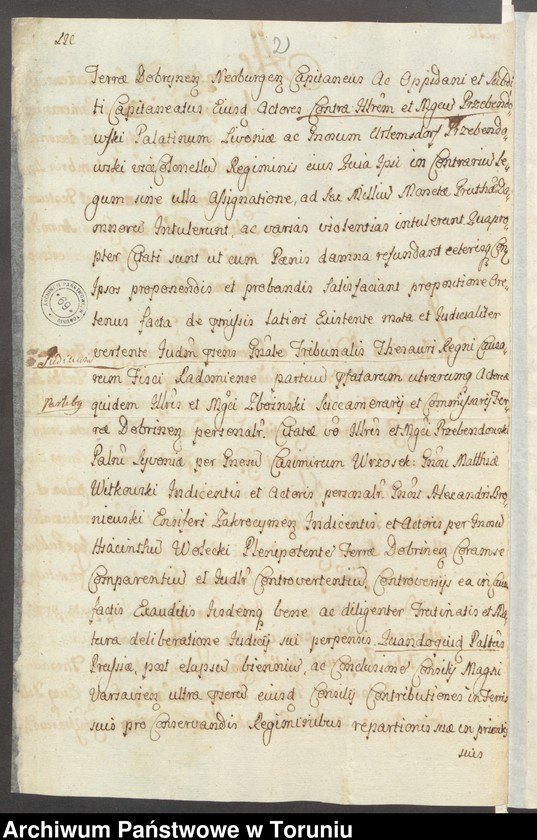 2)
Terræ Dobrynen Neoburgen Capitaneus Ac Oppidani et Subdi
ti Capitaneatus Eiusq Actores Contra Illrem et Mgcum Przebendo
wski Palatinum Livoniæ ac Przebendo
wski viceColonellum Regiminis eius Quia Ipsi in Contrarium Le
gum sine ulla Assignatione, ad Sex Millium Monetæ Da
mnorum Intulerunt, ac varias violentias intulerunt Quapro
pter Citati sunt ut cum Pænis damna refundant ceterisq Con
Ipsos proponendis et probandis satisfaciant propositione Ore
tenus facta de præmissis latiori Existente mota et Iudicialiter
vertente Iudm præns Gnale Tribunalis Thesauri Regni Causa
rum Fisci Radomiense partium præfatarum utrarumq Actorea
quidem Illris et Mgci Zboinski Succamerarij et Commissarij Ter
ræ Dobrinen personalr. Citatæ vo Illris et Mgci Przebendowski
Palni Lyvoniæ per Gnosum Casimirum Wrzosek: Gnosi Matthiæ
Witkowski Indicentis et Actoris personalr Gnosi Alexandri Bro
niewski Ensiferi Zakrocymen Indicentis et Actoris per Gnosum
Hiacinthum Wolecki Plenipotente Terræ Dobrinen Coram se
Comparentium et Iudlr Controvertentium, Controversijs ea in Causa
factis Exauditis Iisdemq bene ac diligenter Trutinatis et Ma
tura deliberatione Iudicij sui perpensis. Quandoquidem Palatinus
Prussiæ, post elapsum biennium, ac Conclusionem Consilij Magni
Varsavien ultra præscriptum eiusq Consilij Contributiones in Terris
suis pro Conservandis Regiminibus repartitionis suæ in privatis
suis
Iudicium
Partibus
ARCHIWUM PAŃSTWOWE W TORUNIU
69
Archiwum Państwowe w Toruniu